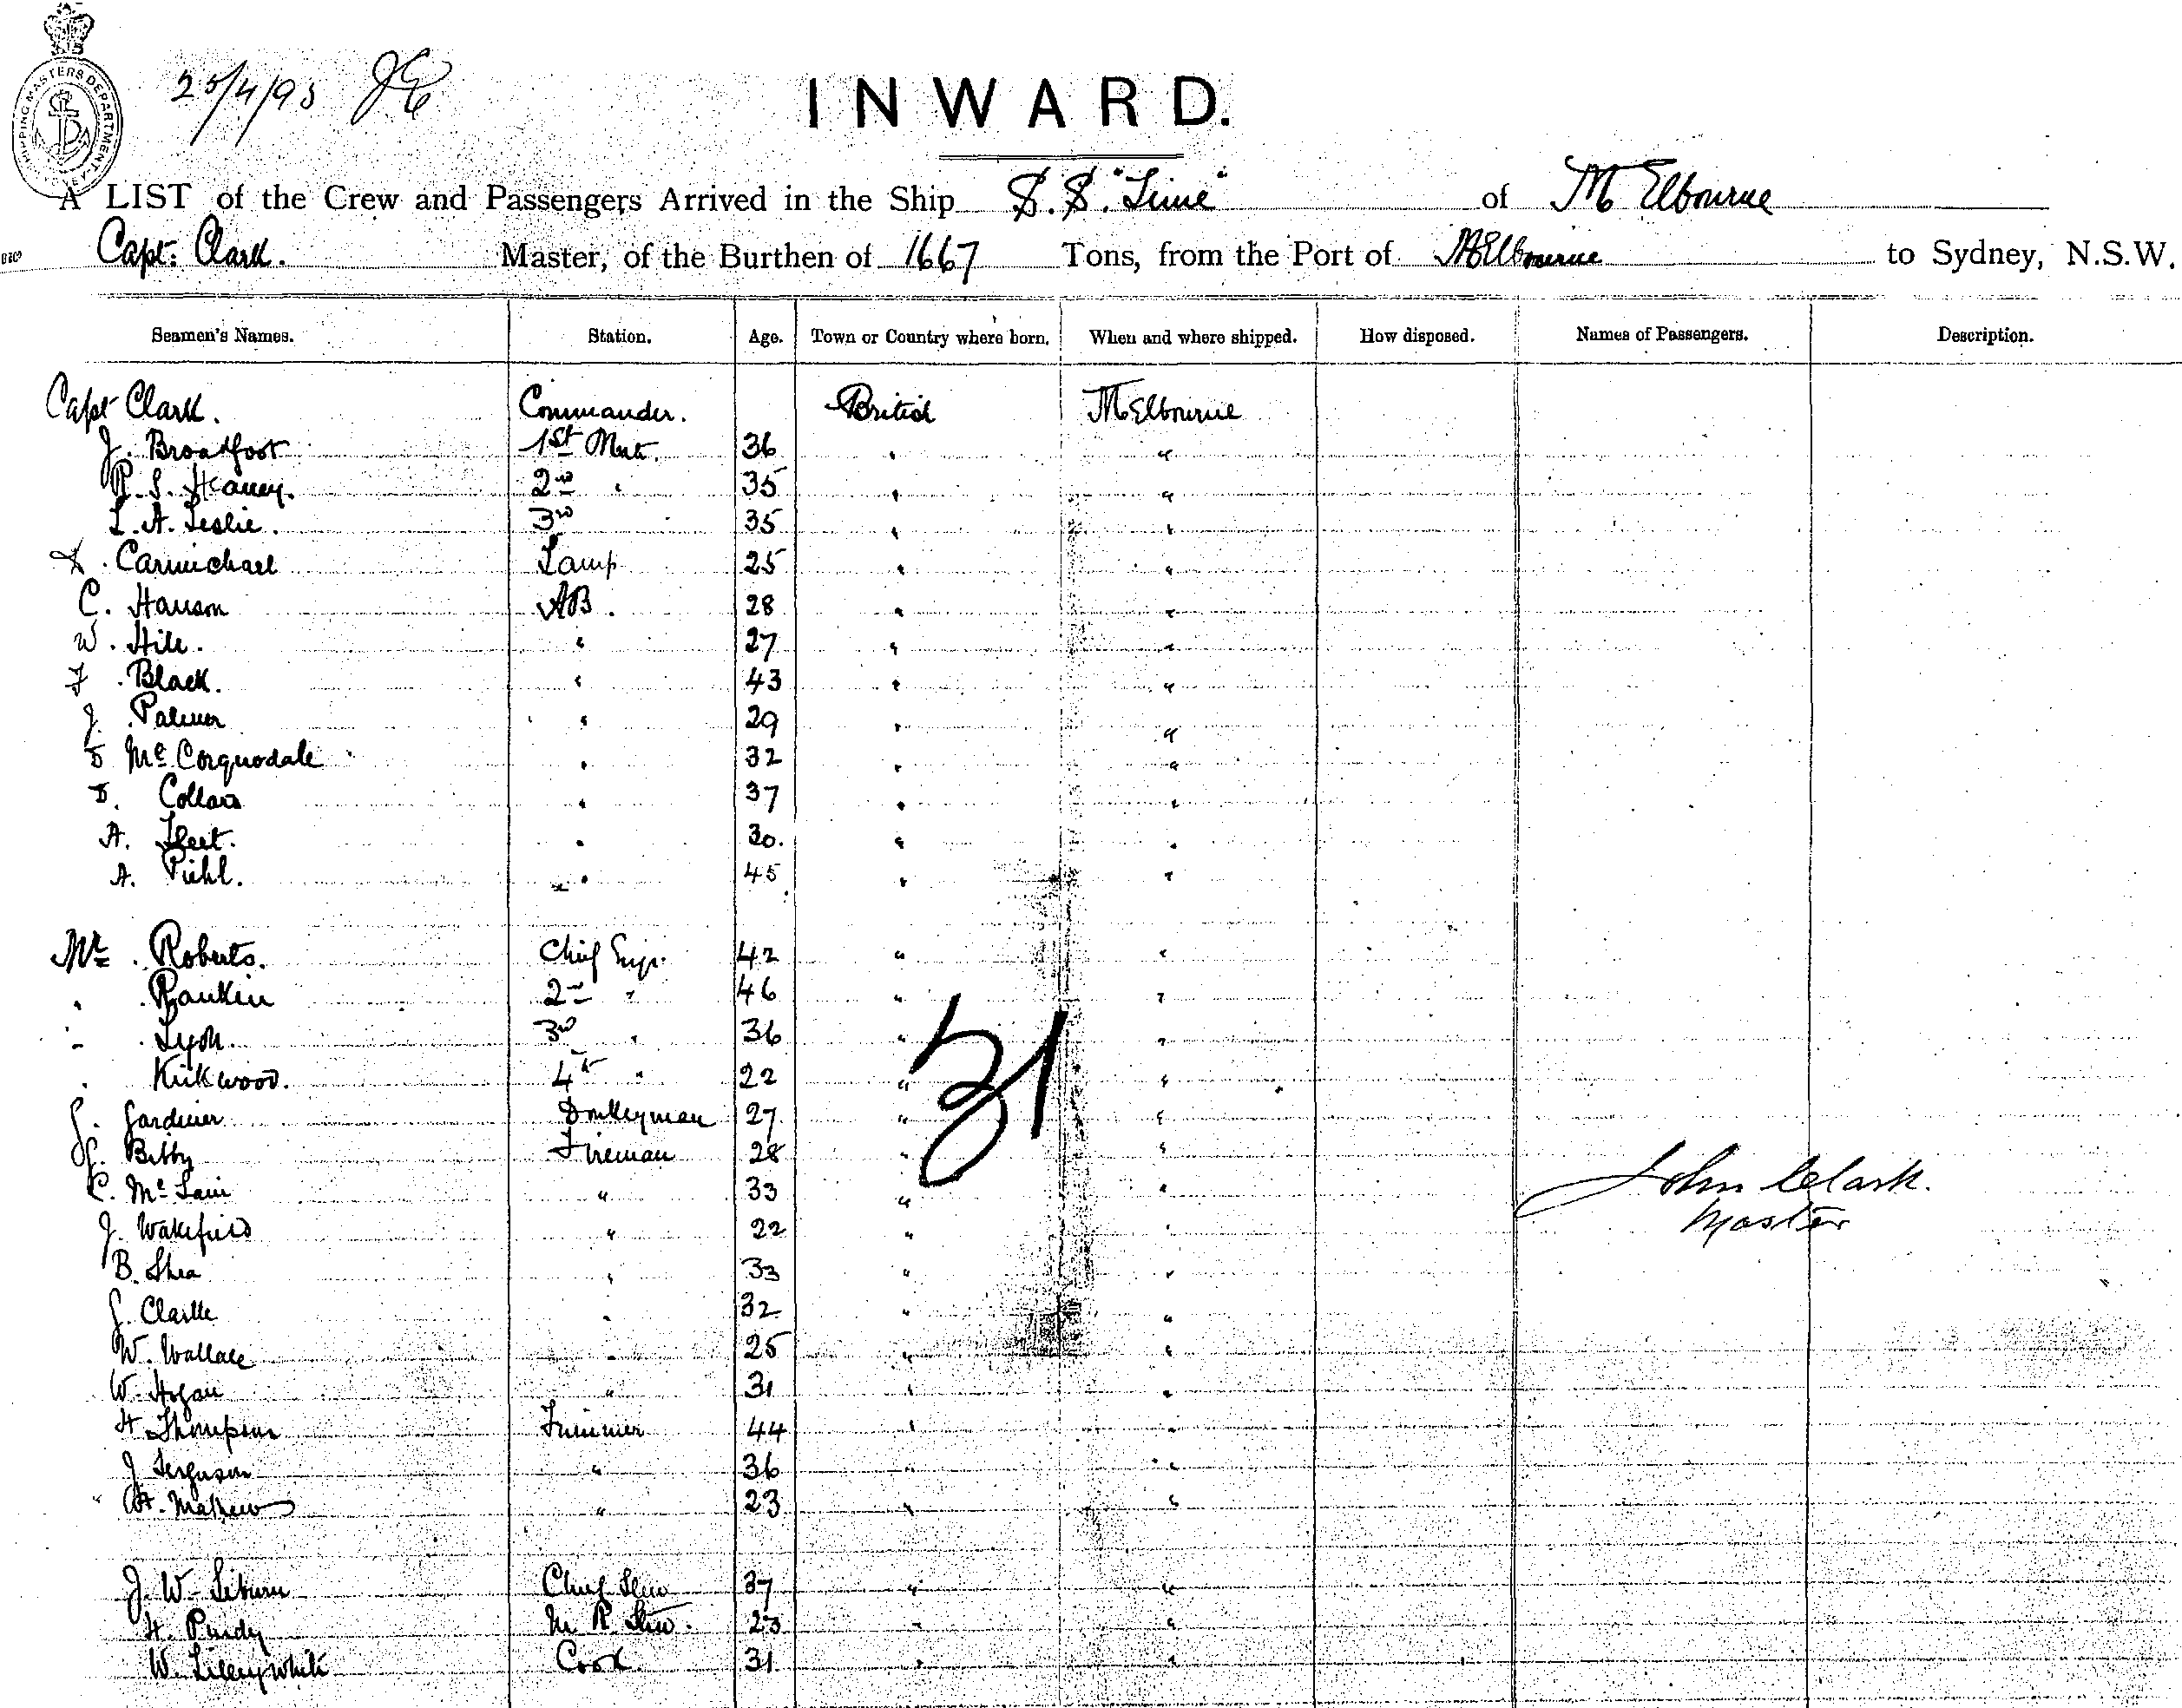 SHIPPING MASTERS DEPARTMENT
25/4/95
INWARD.
A LIST of the Crew and Passengers Arrived in the Ship S.S. "Time" of Melbourne
Capt: Clark. Master, of the Burthen of 1667 Tons, from the Port of Melbourne to Sydney, N.S.W.
Seamen's Names. Station. Age. Town or Country where born. When and where shipped. How disposed. Names of Passengers. Description.
Capt Clark. Commander. British Melbourne
J. Broadfoot 1st Mate. 36 " "
R. S. Heaney. 2nd " 35 " "
L. A. Leslie. 3rd 35 " "
Carmichael Lamp 25 " "
C. Hanson AB. 28 " "
W. Hill. " 27 " "
F. Black. " 43 " "
J. Palmer " 29 " "
D McCorquodale " 32 " "
D. Collars " 37 " "
A. Fleet. " 30. " "
A. Piehl. " 45 " "
Mr. Roberts. Chief Engr. 42 " "
" Rankin 2nd " 46 " "
" Lyon. 3rd " 36 " "
" Kirkwood. 4th " 22 " "
31
G. Gardiner Donkeyman 27 " "
G. Bibby Fireman 28 " "
C. Mc " 33 " "
John Clark.
Master
J. Wakefield " 22 " "
B. Shea " 33 " "
G. Clarke " 32 " "
W. Wallace " 25 " "
W. Hogan " 31 " "
H. Thompson Trimmer 44 " "
J Ferguson " 36 " "
H. Mathews " 23 " "
J. W. Chief Stew 37 " "
H. Purdy M. R. Stew. 23 " "
W. Lillywhite Cook 31 " "